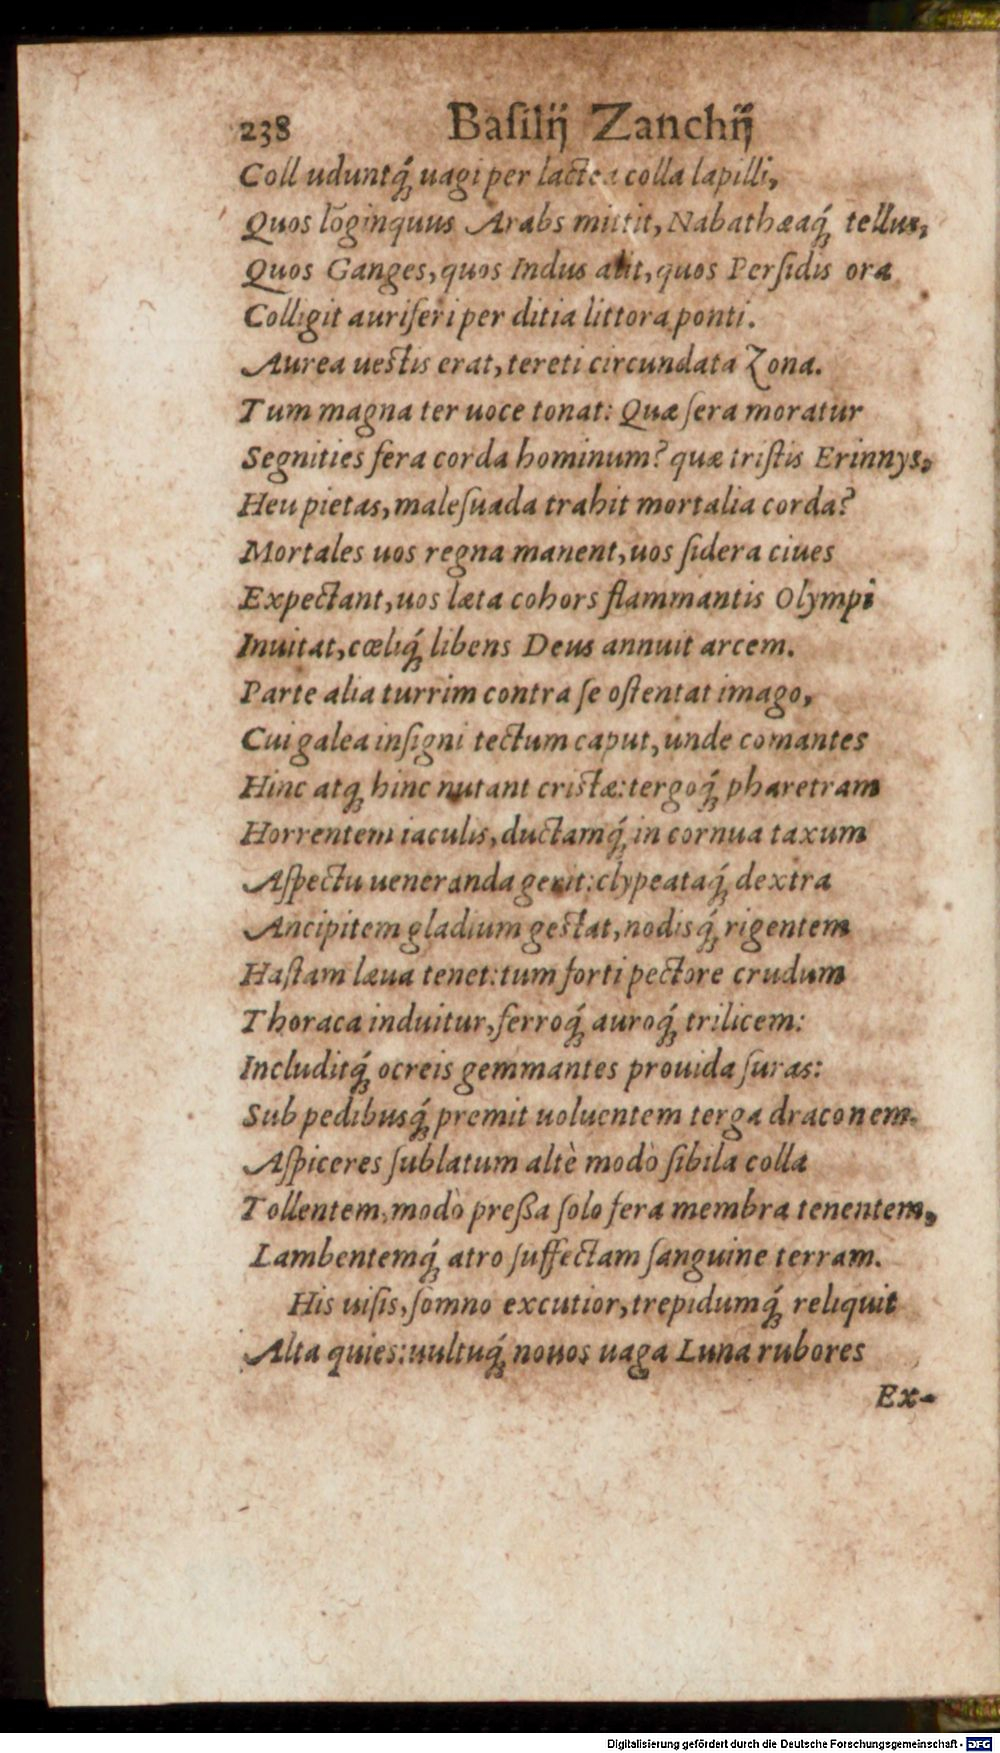 238 Baſilĳ Zanchĳ
Colluduntq́; uagi per lactea colla lapilli,
Quos lõginquus Arabs mittit, Nabathæaq́; tellus,
Quos Ganges, quos Indus alit, quos Perſidis ora
Colligit auriferi per ditia littora ponti.
Aurea ueſtis erat, tereti circundata Zona.
Tum magna ter uoce tonat: Quæ ſera moratur
Segnities fera corda hominum? quæ triſtis Erinnys,
Heu pietas, maleſuada trahit mortalia corda?
Mortales uos regna manent, uos ſidera ciues
Expectant, uos læta cohors flammantis Olympi
Inuitat, cœliq́; libens Deus annuit arcem.
Parte alia turrim contra ſe oſtentat imago,
Cui galea inſigni tectum caput, unde comantes
Hinc atq; hinc nutant criſtæ: tergoq́; pharetram
Horrentem iaculis, ductamq́; in cornua taxum
Aſpectu ueneranda gerit: clypeataq́; dextra
Ancipitem gladium geſtat, nodisq́; rigentem
Haſtam læua tenet: tum forti pectore crudum
Thoraca induitur, ferroq́; auroq́; trilicem:
Includitq́; ocreis gemmantes prouida ſuras:
Sub pedibusq́; premit uoluentem terga draconem.
Aſpiceres ſublatum altè modò ſibila colla
Tollentem, modò preßa ſolo fera membra tenentem,
Lambentemq́; atro ſuffectam ſanguine terram.
His uiſis, ſomno excutior, trepidumq́; reliquit
Alta quies: uultuq́; nouos uaga Luna rubores
Ex-
Digitalisierung gefördert durch die Deutsche Forschungsgemeinschaft - DFG